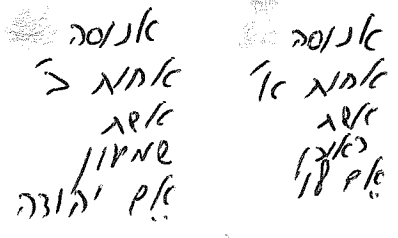 אנוסה
אחות א'
אשת
ראובן
אם לוי
אנוסה
אחות ב'
אשת
שמעון
אם יהודה